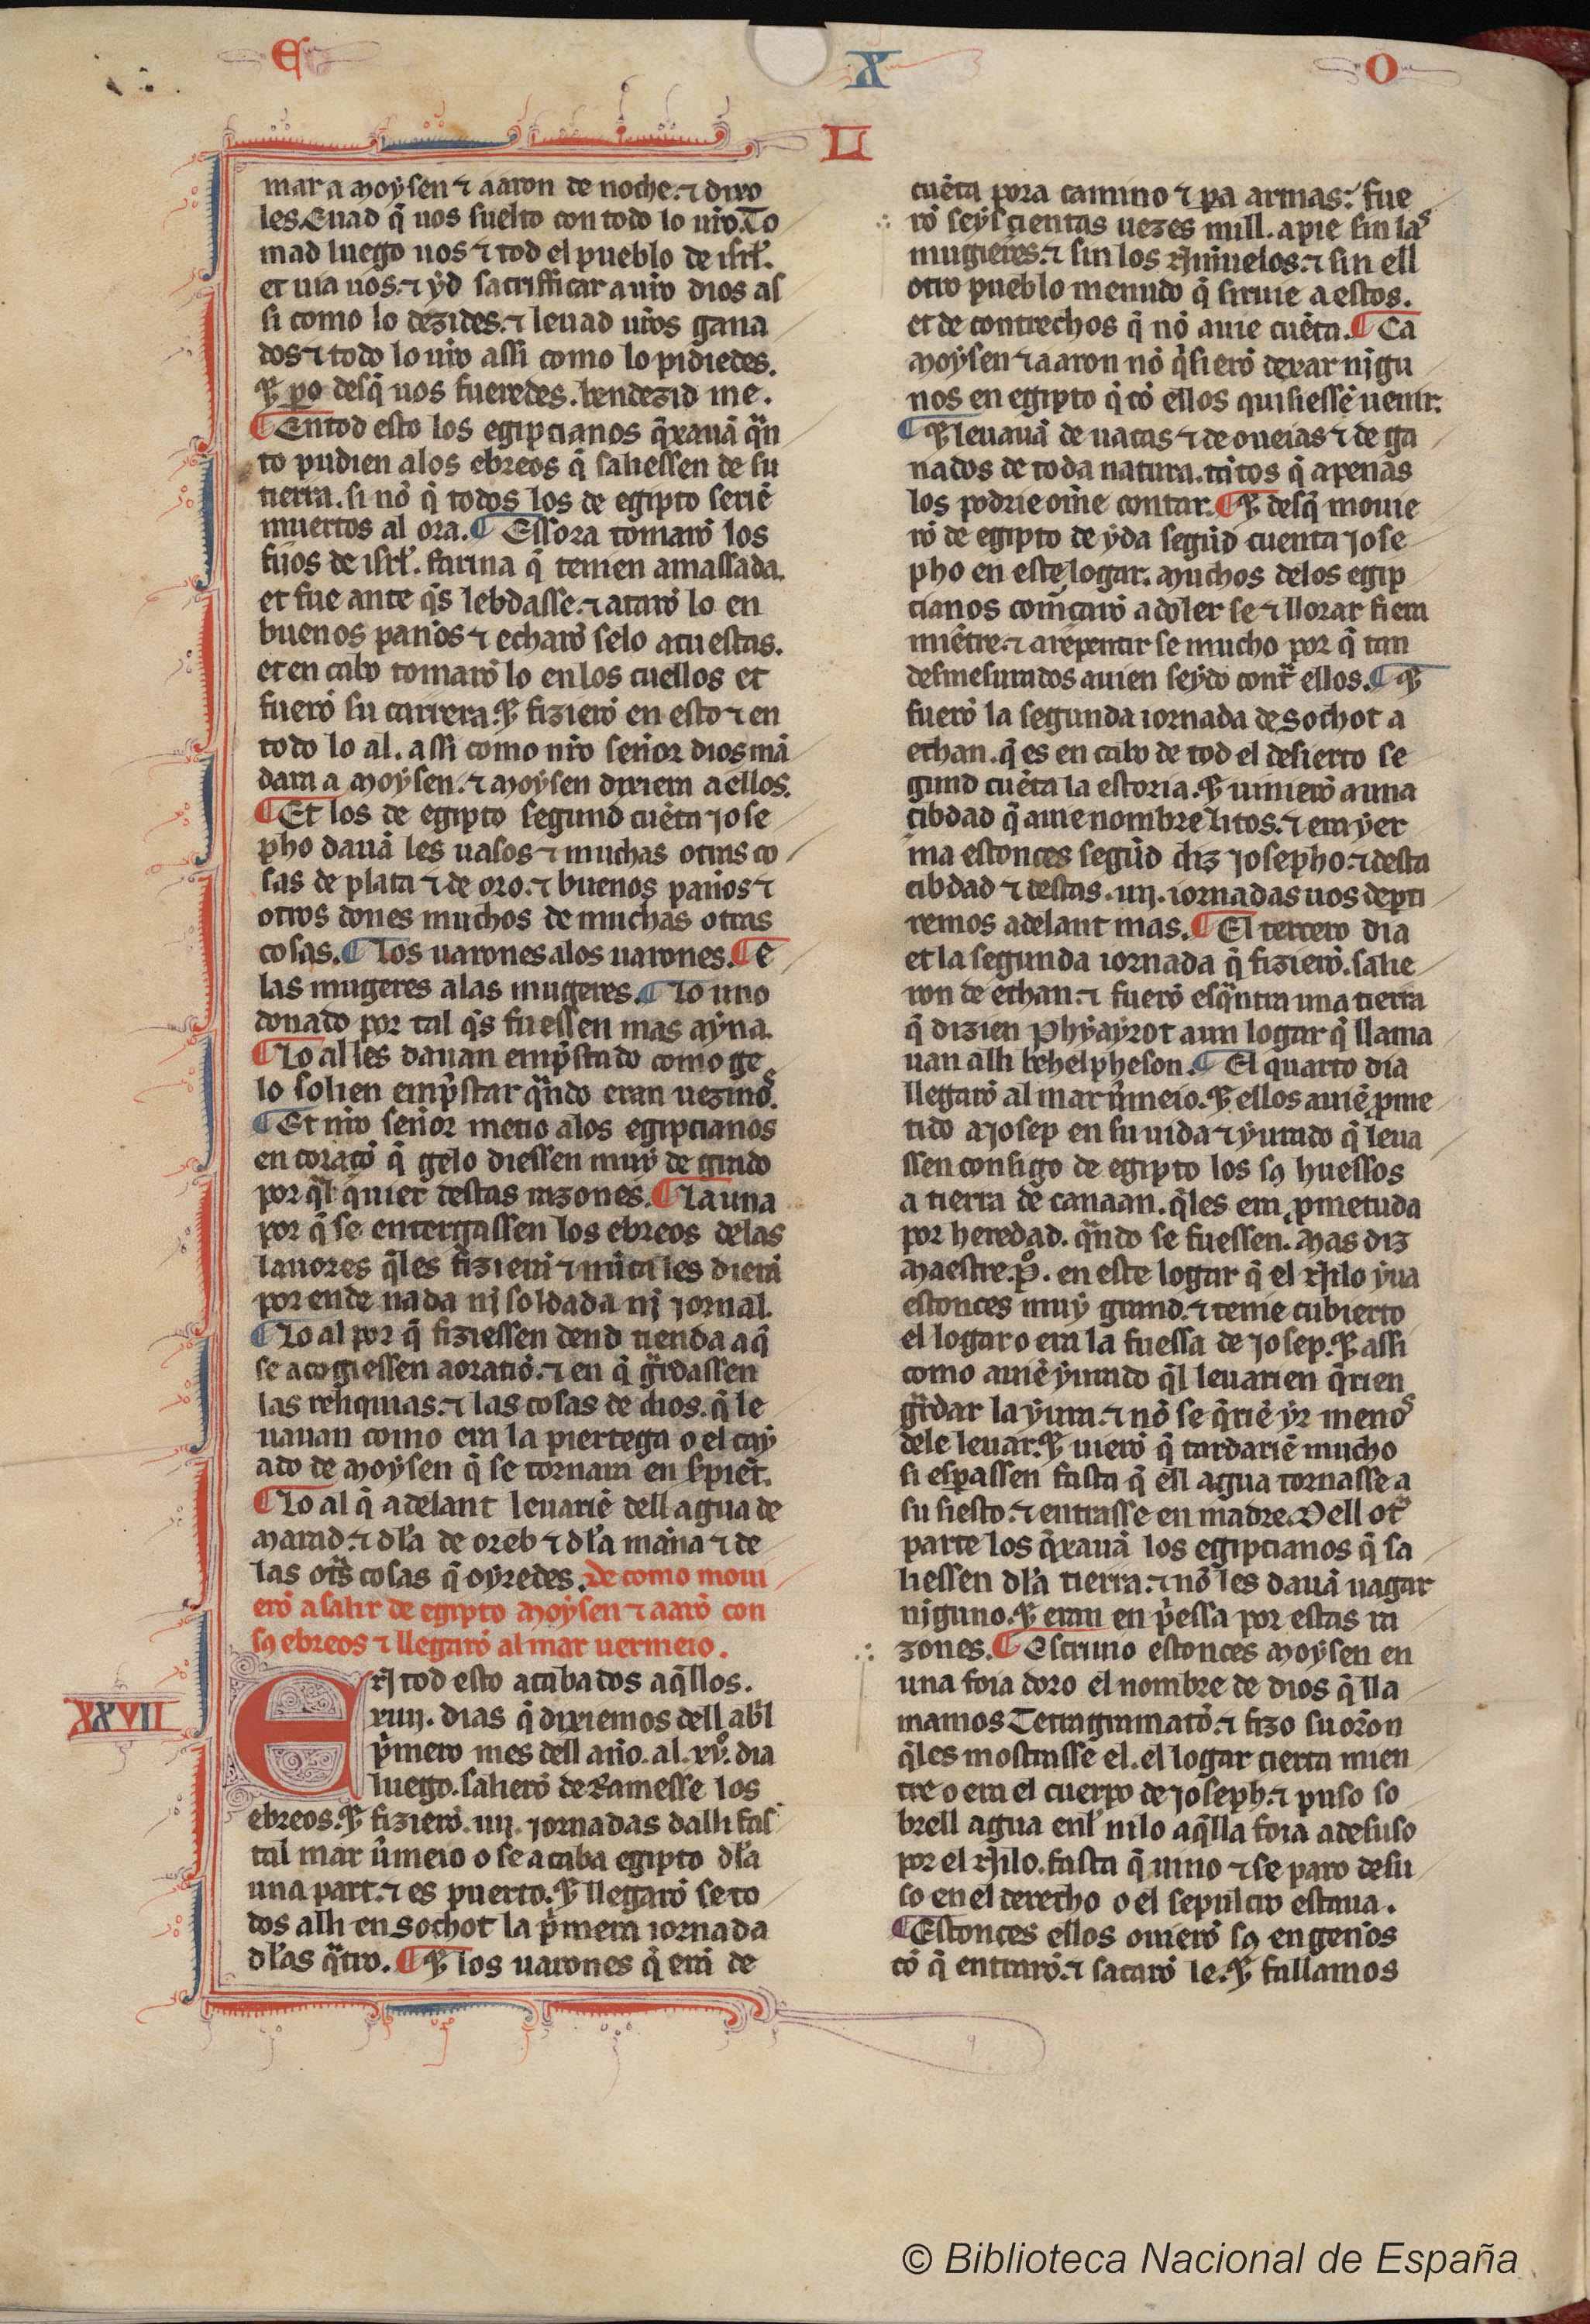 E X O
L
mar a moysen ⁊ aaron de noche. ⁊ dixo
les. Euad q̃ uos suelto con todo lo ur̃o. To
mad luego uos ⁊ tod el pueblo de isrl̃.
et uia uos. ⁊ yd sacrifficar a ur̃o dios as
si como lo dezides. ⁊ leuad ur̃os gana
dos ⁊ todo lo ur̃o assi como lo pidiedes.
⁊ p̱o desq̃ uos fueredes. bendezid me.
¶ En tod esto los egipcianos q̃xauã qũn
to pudien alos ebreos q̃ saliessen de su
tierra. si nõ q̃ todos los de egipto seriẽ
muertos al ora. ¶ Essora tomarõ los
fijos de isrl̃. farina q̃ tenien amassada.
et fue ante q̃s lebdasse. ⁊ atarõ lo en
buenos pannos ⁊ echarõ selo acuestas.
et en cabo tomarõ lo en los cuellos et
fuerõ su carrera. ⁊ fizierõ en esto ⁊ en
todo lo al. assi como nr̃o sennor dios mã
dara a moysen. ⁊ moysen dixiera a ellos.
¶ Et los de egipto segund cuẽta Jose
pho dauã les uasos ⁊ muchas otras co
sas de plata ⁊ de oro. ⁊ buenos pannos ⁊
otros dones muchos de muchas otras
cosas. ¶ Los uarones alos uarones. ¶ E
las mugeres alas mugeres. ¶ Lo uno
donado por tal q̃s fuessen mas ayna.
¶ Lo al les dauan emp̃stado como ge
lo solien emp̃star qũndo eran uezinos.
¶ Et nr̃o sennor metio alos egipcianos
en coraçõ q̃ gelo diessen muy de grado
por q̃l q̃uier destas razones. ¶ La una
por q̃ se entergassen los ebreos delas
lauores q̃les fizierã ⁊ nũca les dierã
por ende nada nj soldada nj jornal.
¶ Lo al por q̃ fiziessen dend tienda a q̃
se acogiessen a oratiõ. ⁊ en q̃ gũrdassen
las reliquias. ⁊ las cosas de dios. q̃ le
uauan como era la piertega o el cay
ado de moysen q̃ se tornara en s̃piet̃.
¶ Lo al q̃ adelant leuariẽ dell agua de
marad. ⁊ dl̃a de oreb ⁊ dl̃a mãna ⁊ de
las ot̃s cosas q̃ oyredes. De como moui
erõ a salir de egipto moysen ⁊ aarõ con
sꝯ ebreos ⁊ llegarõ al mar uermeio.
XXVII
En tod esto acabados aq̃llos.
xiiij. dias q̃ dixiemos dell abl̃
p̃mero mes dell anno. al .xvº. dia
luego. salierõ de Ramesse los
ebreos. ⁊ fizierõ .iiij. jornadas dalli fas
tal mar ũmeio o se acaba egipto dl̃a
una part. ⁊ es puerto. ⁊ llegarõ se to
dos alli en Sochot la p̃mera iornada
dl̃as q̃tro. ¶ ⁊ los uarones q̃ erã de
cuẽta pora camino ⁊ pa armas: fue
rõ seyscientas uezes mill. a pie sin las
mugieres. ⁊ sin los ninnuelos. ⁊ sin ell
otro pueblo menudo q̃ siruie a estos.
et de contrechos q̃ nõ auie cuẽta. ¶ Ca
moysen ⁊ aaron nõ q̃sierõ dexar nĩgu
nos en egipto q̃ cõ ellos quisiessẽ uenir.
¶ ⁊ leuauã de uacas ⁊ de oueias ⁊ de ga
nados de toda natura. tãtos q̃ apenas
los podrie om̃e contar. ¶ ⁊ desq̃ mouie
rõ de egipto de yda segũd cuenta Jose
pho en este logar. muchos delos egip
cianos com̃çarõ a doler se ⁊ llorar fiera
miẽtre. ⁊ arrepentir se mucho por q̃ tan
desmesurados auien seydo contr̃ ellos. ¶ ⁊
fuerõ la segunda iornada de Sochot a
ethan. q̃ es en cabo de tod el desierto se
gund cuẽta la estoria. ⁊ uinierõ a una
cibdad q̃ auie nombre litos. ⁊ era yer
ma estonces segũd diz Josepho. ⁊ desta
cibdad ⁊ destas .iiij. iornadas uos depti
remos adelant mas. ¶ El tercero dia
et la segunda iornada q̃ fizierõ. salie
ron de ethan. ⁊ fuerõ esq̃ntra una tierra
q̃ dizien Phyayrot a un logar q̃ llama
uan alli behelpheson. ¶ El quarto dia
llegarõ al mar ũmeio. ⁊ ellos auiẽ p̱me
tido a Josep en su uida ⁊ yurado q̃ leua
ssen consigo de egipto los sꝯ huessos
a tierra de canaan. q̃les era p̱metuda
por heredad. qũndo se fuessen. Mas diz
Maestre .pº. en este logar q̃ el Nilo yua
estonces muy grand. ⁊ tenie cubierto
el logar o era la fuessa de Josep. ⁊ assi
como auiẽ yurado q̃l leuarien q̃rien
gũrdar la yura. ⁊ nõ se q̃riẽ yr menos
dele leuar. ⁊ uierõ q̃ tardariẽ mucho
si esp̱assen fasta q̃ ell agua tornasse a
su siesto. ⁊ entrasse en madre. Dell ot̃
parte los q̃xauã los egipcianos q̃ sa
liessen dl̃a tierra. ⁊ nõ les dauã uagar
nĩguno. ⁊ eran en p̃essa por estas ra
zones. ¶ Escriuio estonces moysen en
una foia doro el nombre de dios q̃ lla
mamos Tetragramatõ. ⁊ fizo su or̃on
q̃les mostrasse el. el logar cierta mien
tre o era el cuerpo de Joseph. ⁊ puso so
brell agua enl̃ nilo aq̃lla foia a desuso
por el Nilo. fasta q̃ uino ⁊ se paro desu
so en el derecho o el sepulcro estaua.
¶ Estonces ellos ouierõ sꝯ engennos
cõ q̃ entrarõ. ⁊ sacarõ le. ⁊ fallamos
© Biblioteca Nacional de España